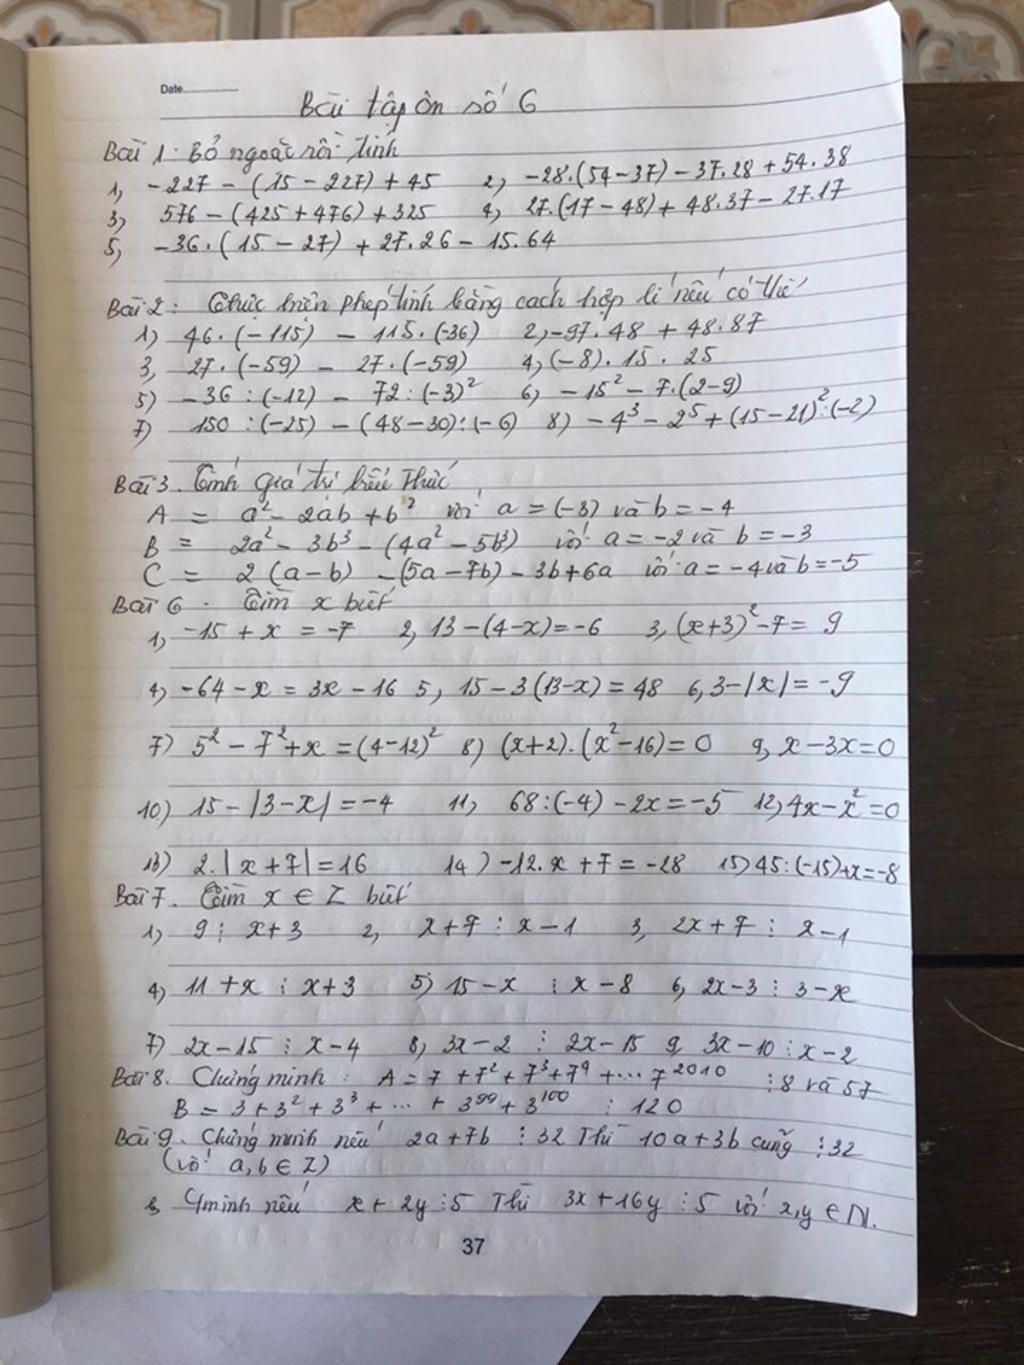 Date
Bài tập ôn số 6
Bài 1: Bỏ ngoặc rồi tính
1, -227 - (15 - 227) + 45 2, -28.(54-37) - 37.28 + 54.38
3, 576 - (425 + 476) + 325 4, 27.(17 - 48) + 48.37 - 27.17
5, -36.(15 - 27) + 27.26 - 15.64
Bài 2: Thực hiện phép tính bằng cách hợp lí nếu có thể
1) 46.(-115) - 115.(-36) 2, -97.48 + 48.87
3, 27.(-59) - 27.(-59) 4, (-8).15.25
5) -36:(-12) - 72:(-3)² 6, -15² - 7.(2-9)
7) 150:(-25) - (48-30):(-6) 8) -4³ - 2⁵ + (15-21)²:(-2)
Bài 3. Tính giá trị biểu thức
A = a² - 2ab + b² với a = (-3) và b = -4
B = 2a² - 3b³ - (4a² - 5b³) với a = -2 và b = -3
C = 2(a-b) - (5a-7b) - 3b + 6a với a = -4 và b = -5
Bài 6. Tìm x biết
1, -15 + x = -7 2, 13 - (4-x) = -6 3, (x+3)² - 7 = 9
4) -64 - x = 3x - 16 5, 15 - 3(13-x) = 48 6, 3 - |x| = -9
7) 5² - 7² + x = (4-12)² 8) (x+2).(x²-16) = 0 9, x - 3x = 0
10) 15 - |3-x| = -4 11, 68:(-4) - 2x = -5 12, 4x - x² = 0
13) 2.|x+7| = 16 14) -12.x + 7 = -28 15) 45:(-15)+x = -8
Bài 7. Tìm x ∈ Z biết
1) 9 ⋮ x+3 2, x+7 ⋮ x-1 3, 2x+7 ⋮ x-1
4) 11+x ⋮ x+3 5) 15-x ⋮ x-8 6, 2x-3 ⋮ 3-x
7) 2x-15 ⋮ x-4 8, 3x-2 ⋮ 2x-15 9, 3x-10 ⋮ x-2
Bài 8. Chứng minh: A = 7 + 7² + 7³ + 7⁴ + ... 7²⁰¹⁰ ⋮ 8 và 57
B = 3 + 3² + 3³ + ... + 3⁹⁹ + 3¹⁰⁰ ⋮ 120
Bài 9. Chứng minh nếu 2a+7b ⋮ 32 Thì 10a+3b cũng ⋮ 32
(với a, b ∈ Z)
minh nếu x + 2y ⋮ 5 Thì 3x + 16y ⋮ 5 với x,y ∈ N.
37